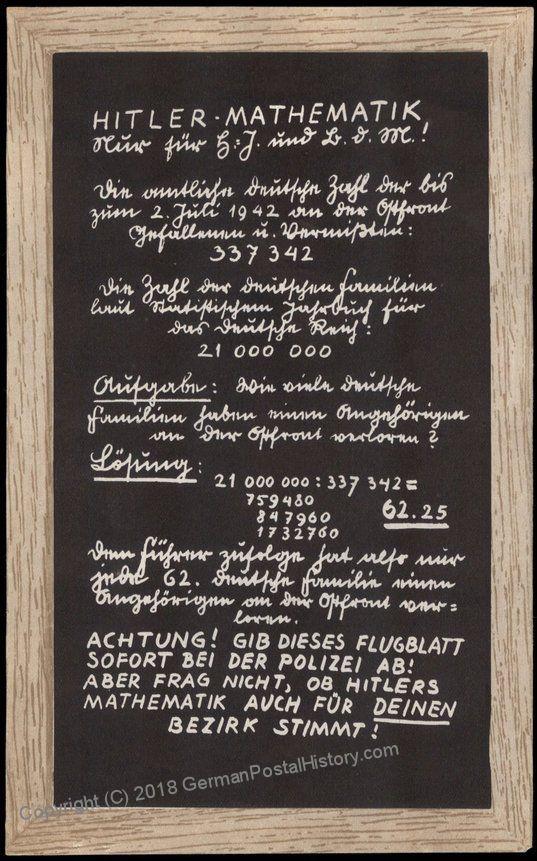 HITLER-MATHEMATIK
Nur für H.J. und B.d.M.!
Die amtliche deutsche Zahl der bis
zum 2. Juli 1942 an der Ostfront
Gefallenen u. Vermißten:
337 342
Die Zahl der deutschen Familien
laut Statistischem Jahrbuch für
das Deutsche Reich:
21 000 000
Aufgabe: Wie viele deutsche
Familien haben einen Angehörigen
an der Ostfront verloren?
Lösung:
21 000 000 : 337 342 =
759480
847960
62.25
1732760
Dem Führer zufolge hat also nur
jede 62. deutsche Familie einen
Angehörigen an der Ostfront ver=
loren.
ACHTUNG! GIB DIESES FLUGBLATT
SOFORT BEI DER POLIZEI AB!
ABER FRAG NICHT, OB HITLERS
MATHEMATIK AUCH FÜR DEINEN
BEZIRK STIMMT!
Copyright (C) 2018 GermanPostalHistory.com